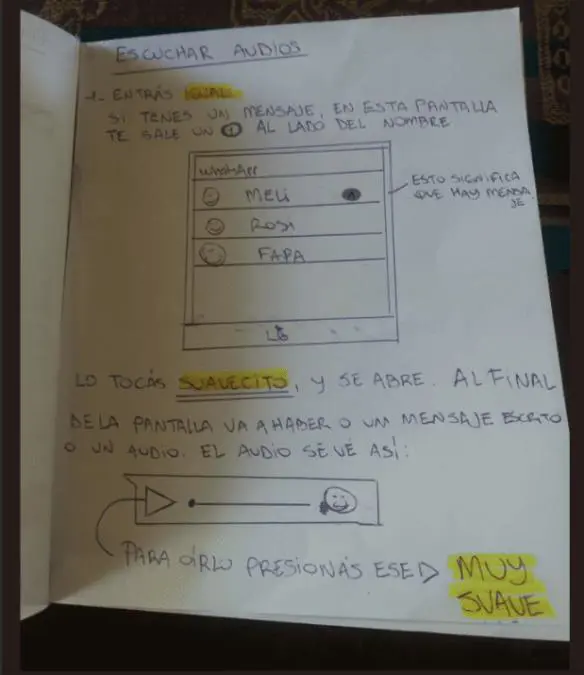 ESCUCHAR AUDIOS
1- ENTRÁS IGUAL.
SI TENES UN MENSAJE, EN ESTA PANTALLA
TE SALE UN 1 AL LADO DEL NOMBRE
WhatsApp
MELI 1
ROSI
FAPA
ESTO SIGNIFICA
QUE HAY MENSA
JE
LO TOCÁS SUAVECITO, Y SE ABRE. AL FINAL
DE LA PANTALLA VA A HABER O UN MENSAJE ESCRITO
O UN AUDIO. EL AUDIO SE VÉ ASÍ:
PARA OÍRLO PRESIONÁS ESE ▷ MUY
SUAVE